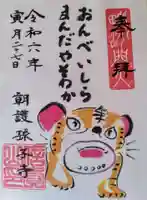 奉拝
おんべいしら
まんだやそわか
令和六年
寅月二十七日
朝護孫子寺